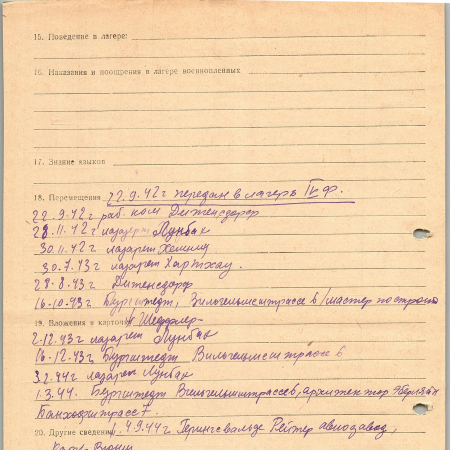 15. Поведение в лагере:
16. Наказания и поощрения в лагере военнопленных
17. Знание языков
18. Перемещения 22.9.42г передан в лагерь IVФ.
22.9.42г раб. ком Дитенсдорф
28.11.42г лазарет Лунбак
30.11.42г лазарет Хемниц
30.7.43г лазарет Хартхау.
28.8.43г Дитенсдорф
16.10.43г Бургштедт, Вильгельмштрассе 6 /мастер по строит
19. Вложения в карточку Шедлер
2.12.43г лазарет Лунбак
16.12.43г Бургштедт Вильгельмштрассе 6
3.2.44г лазарет Лунбак
1.3.44. Бургштедт Вильгельмштрассе 6, архитектор Эберлейн
Банхофштрассе 7.
20. Другие сведения 4.9.44г Герингсвальде Рейтер авиозавод,